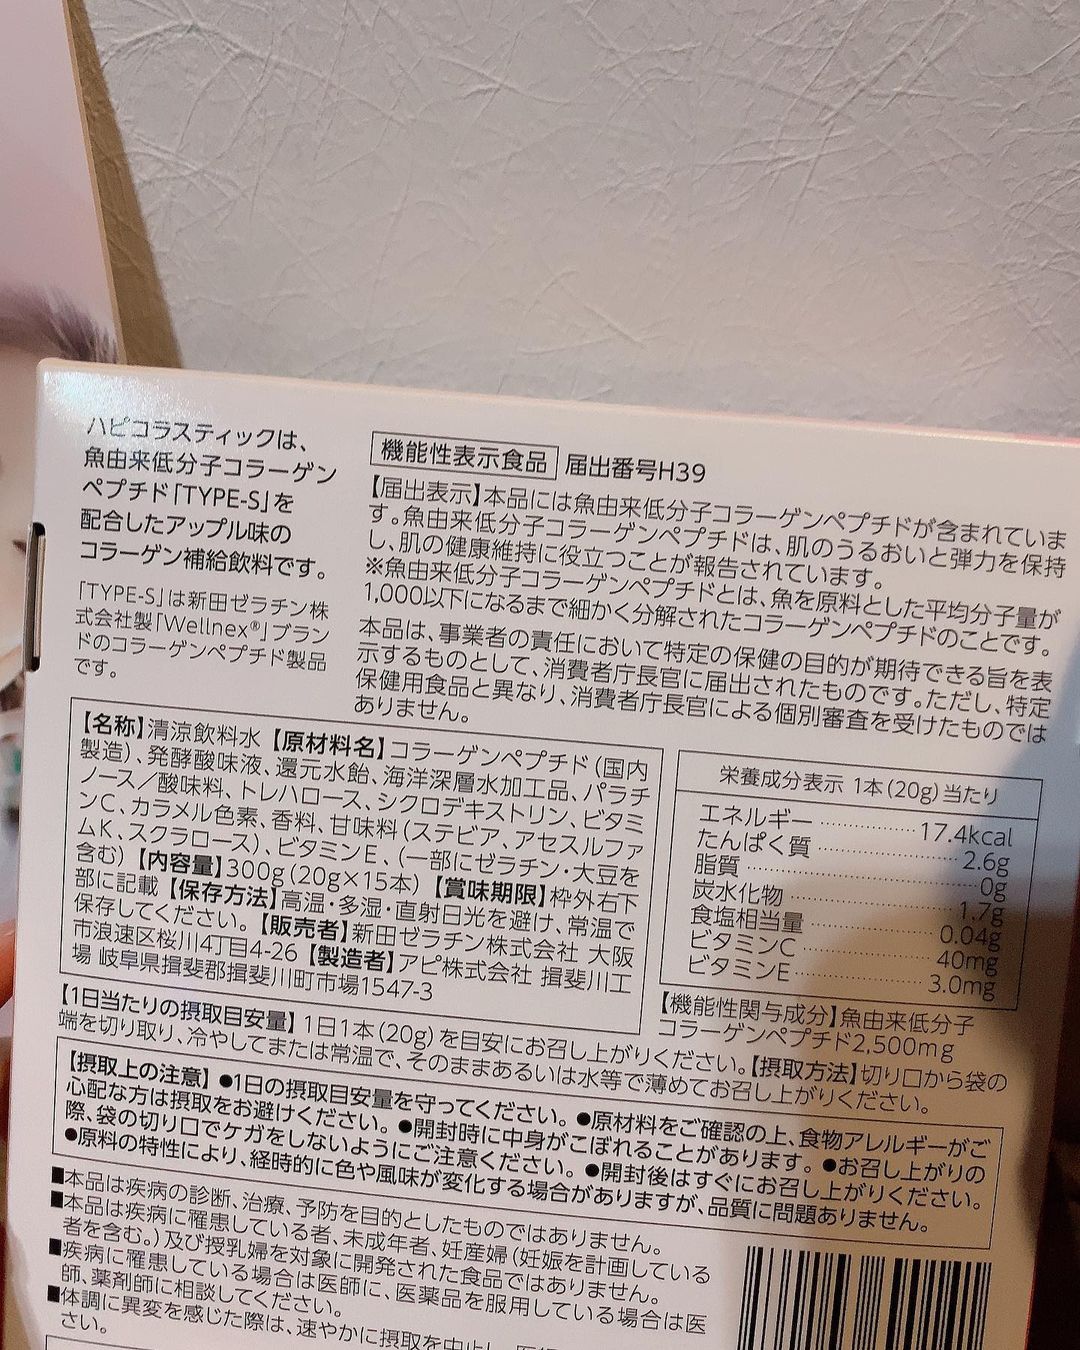 ハピコラスティックは、
魚由来低分子コラーゲン
ペプチド「TYPE-S」を
配合したアップル味の
コラーゲン補給飲料です。
「TYPE-S」は新田ゼラチン株
式会社製「Wellnex®」ブラン
ドのコラーゲンペプチド製品
です。
機能性表示食品 届出番号H39
【届出表示】本品には魚由来低分子コラーゲンペプチドが含まれていま
す。魚由来低分子コラーゲンペプチドは、肌のうるおいと弾力を保持
し、肌の健康維持に役立つことが報告されています。
※魚由来低分子コラーゲンペプチドとは、魚を原料とした平均分子量が
1,000以下になるまで細かく分解されたコラーゲンペプチドのことです。
本品は、事業者の責任において特定の保健の目的が期待できる旨を表
示するものとして、消費者庁長官に届出されたものです。ただし、特定
保健用食品と異なり、消費者庁長官による個別審査を受けたものでは
ありません。
【名称】清涼飲料水【原材料名】コラーゲンペプチド(国内
製造)、発酵酸味液、還元水飴、海洋深層水加工品、パラチ
ノース/酸味料、トレハロース、シクロデキストリン、ビタミ
ンC、カラメル色素、香料、甘味料(ステビア、アセスルファ
ムK、スクラロース)、ビタミンE、(一部にゼラチン・大豆を
含む)【内容量】300g(20g×15本)【賞味期限】枠外右下
部に記載【保存方法】高温・多湿・直射日光を避け、常温で
保存してください。【販売者】新田ゼラチン株式会社 大阪
市浪速区桜川4丁目4-26【製造者】アピ株式会社 揖斐川工
場 岐阜県揖斐郡揖斐川町市場1547-3
栄養成分表示 1本(20g)当たり
エネルギー 17.4kcal
たんぱく質 2.6g
脂質 0g
炭水化物 1.7g
食塩相当量 0.04g
ビタミンC 40mg
ビタミンE 3.0mg
【機能性関与成分】魚由来低分子
コラーゲンペプチド2,500mg
【1日当たりの摂取目安量】1日1本(20g)を目安にお召し上がりください。【摂取方法】切り口から袋の
端を切り取り、冷やしてまたは常温で、そのままあるいは水等で薄めてお召し上がりください。
【摂取上の注意】●1日の摂取目安量を守ってください。●原材料をご確認の上、食物アレルギーがご
心配な方は摂取をお避けください。●開封時に中身がこぼれることがあります。●お召し上がりの
際、袋の切り口でケガをしないようにご注意ください。●開封後はすぐにお召し上がりください。
●原料の特性により、経時的に色や風味が変化する場合がありますが、品質に問題ありません。
■本品は疾病の診断、治療、予防を目的としたものではありません。
■本品は疾病に罹患している者、未成年者、妊産婦(妊娠を計画している
者を含む。)及び授乳婦を対象に開発された食品ではありません。
■疾病に罹患している場合は医師に、医薬品を服用している場合は医
師、薬剤師に相談してください。
■体調に異変を感じた際は、速やかに摂取を中止し、
さい。